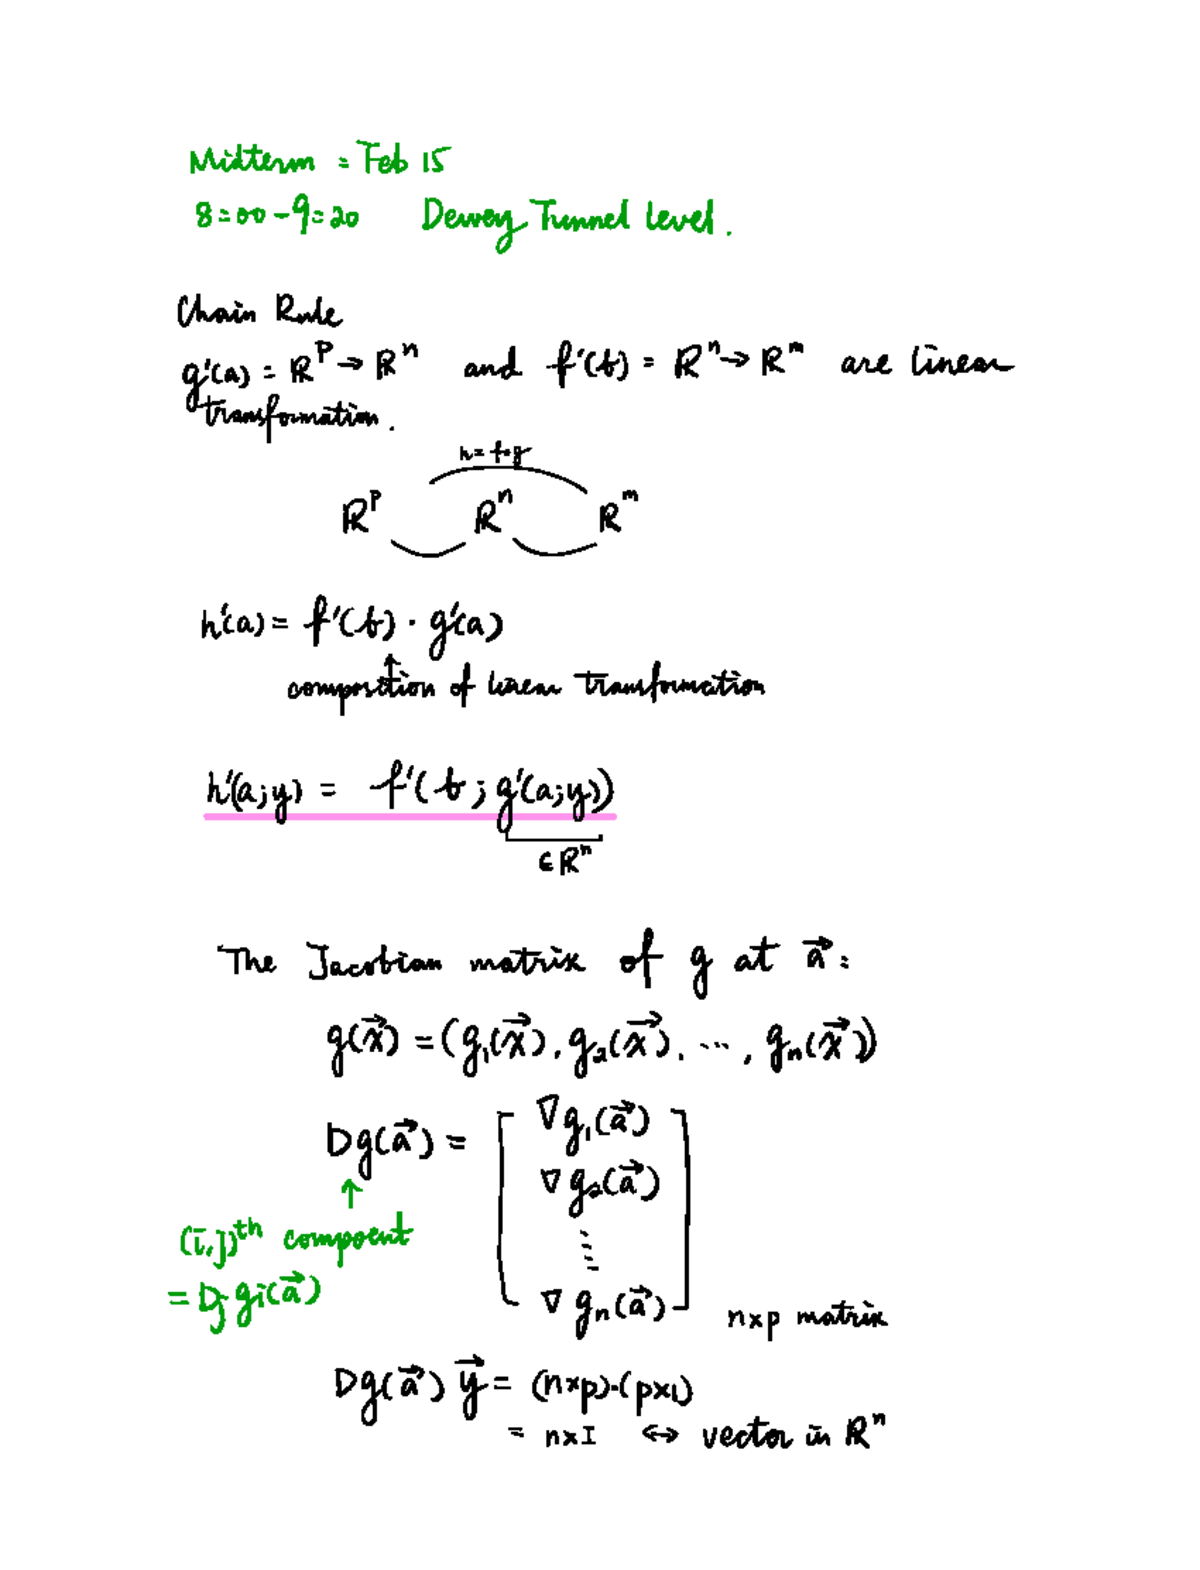 Midterm : Feb 15
8:00-9:20 Dewey Tunnel Level.
Chain Rule
g'(a) : ℝᵖ → ℝⁿ and f'(b) : ℝⁿ → ℝᵐ are linear
transformation.
h = f∘g
ℝᵖ ℝⁿ ℝᵐ
h'(a) = f'(b) · g'(a)
↑
composition of linear transformation
h'(a;y) = f'(b; g'(a;y))
∈ ℝⁿ
The Jacobian matrix of g at a⃗:
g(x⃗) = (g₁(x⃗), g₂(x⃗), ..., gₙ(x⃗))
Dg(a⃗) = [ ∇g₁(a⃗)
∇g₂(a⃗)
⋮
∇gₙ(a⃗) ] n×p matrix
↑
(i,j)ᵗʰ compoent
= Dⱼ gᵢ(a⃗)
Dg(a⃗) y⃗ = (n×p)·(p×1)
= n×1 ↔ vector in ℝⁿ